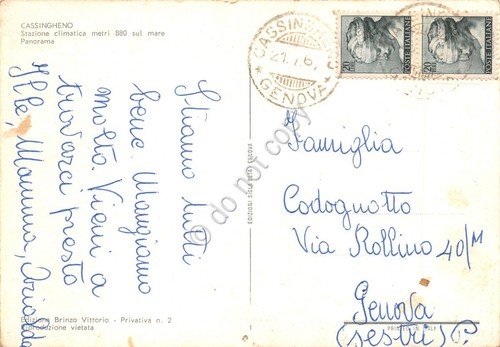 CASSINGHENO
Stazione climatica metri 880 sul mare
Panorama
Stiamo tutti
bene. Mangiamo
molto. Vieni a
trovarci presto
Mamma,
Edizione Brinzo Vittorio - Privativa n. 2
Riproduzione vietata
EDIZIONI GENOVA
CASSINGHENO
21.7.6
* GENOVA *
20
POSTE ITALIANE
20
POSTE ITALIANE
Famiglia
Codognotto
Via Rollino 40/M
Genova
(Sestri) P.
PRINTED IN ITALY
do not copy